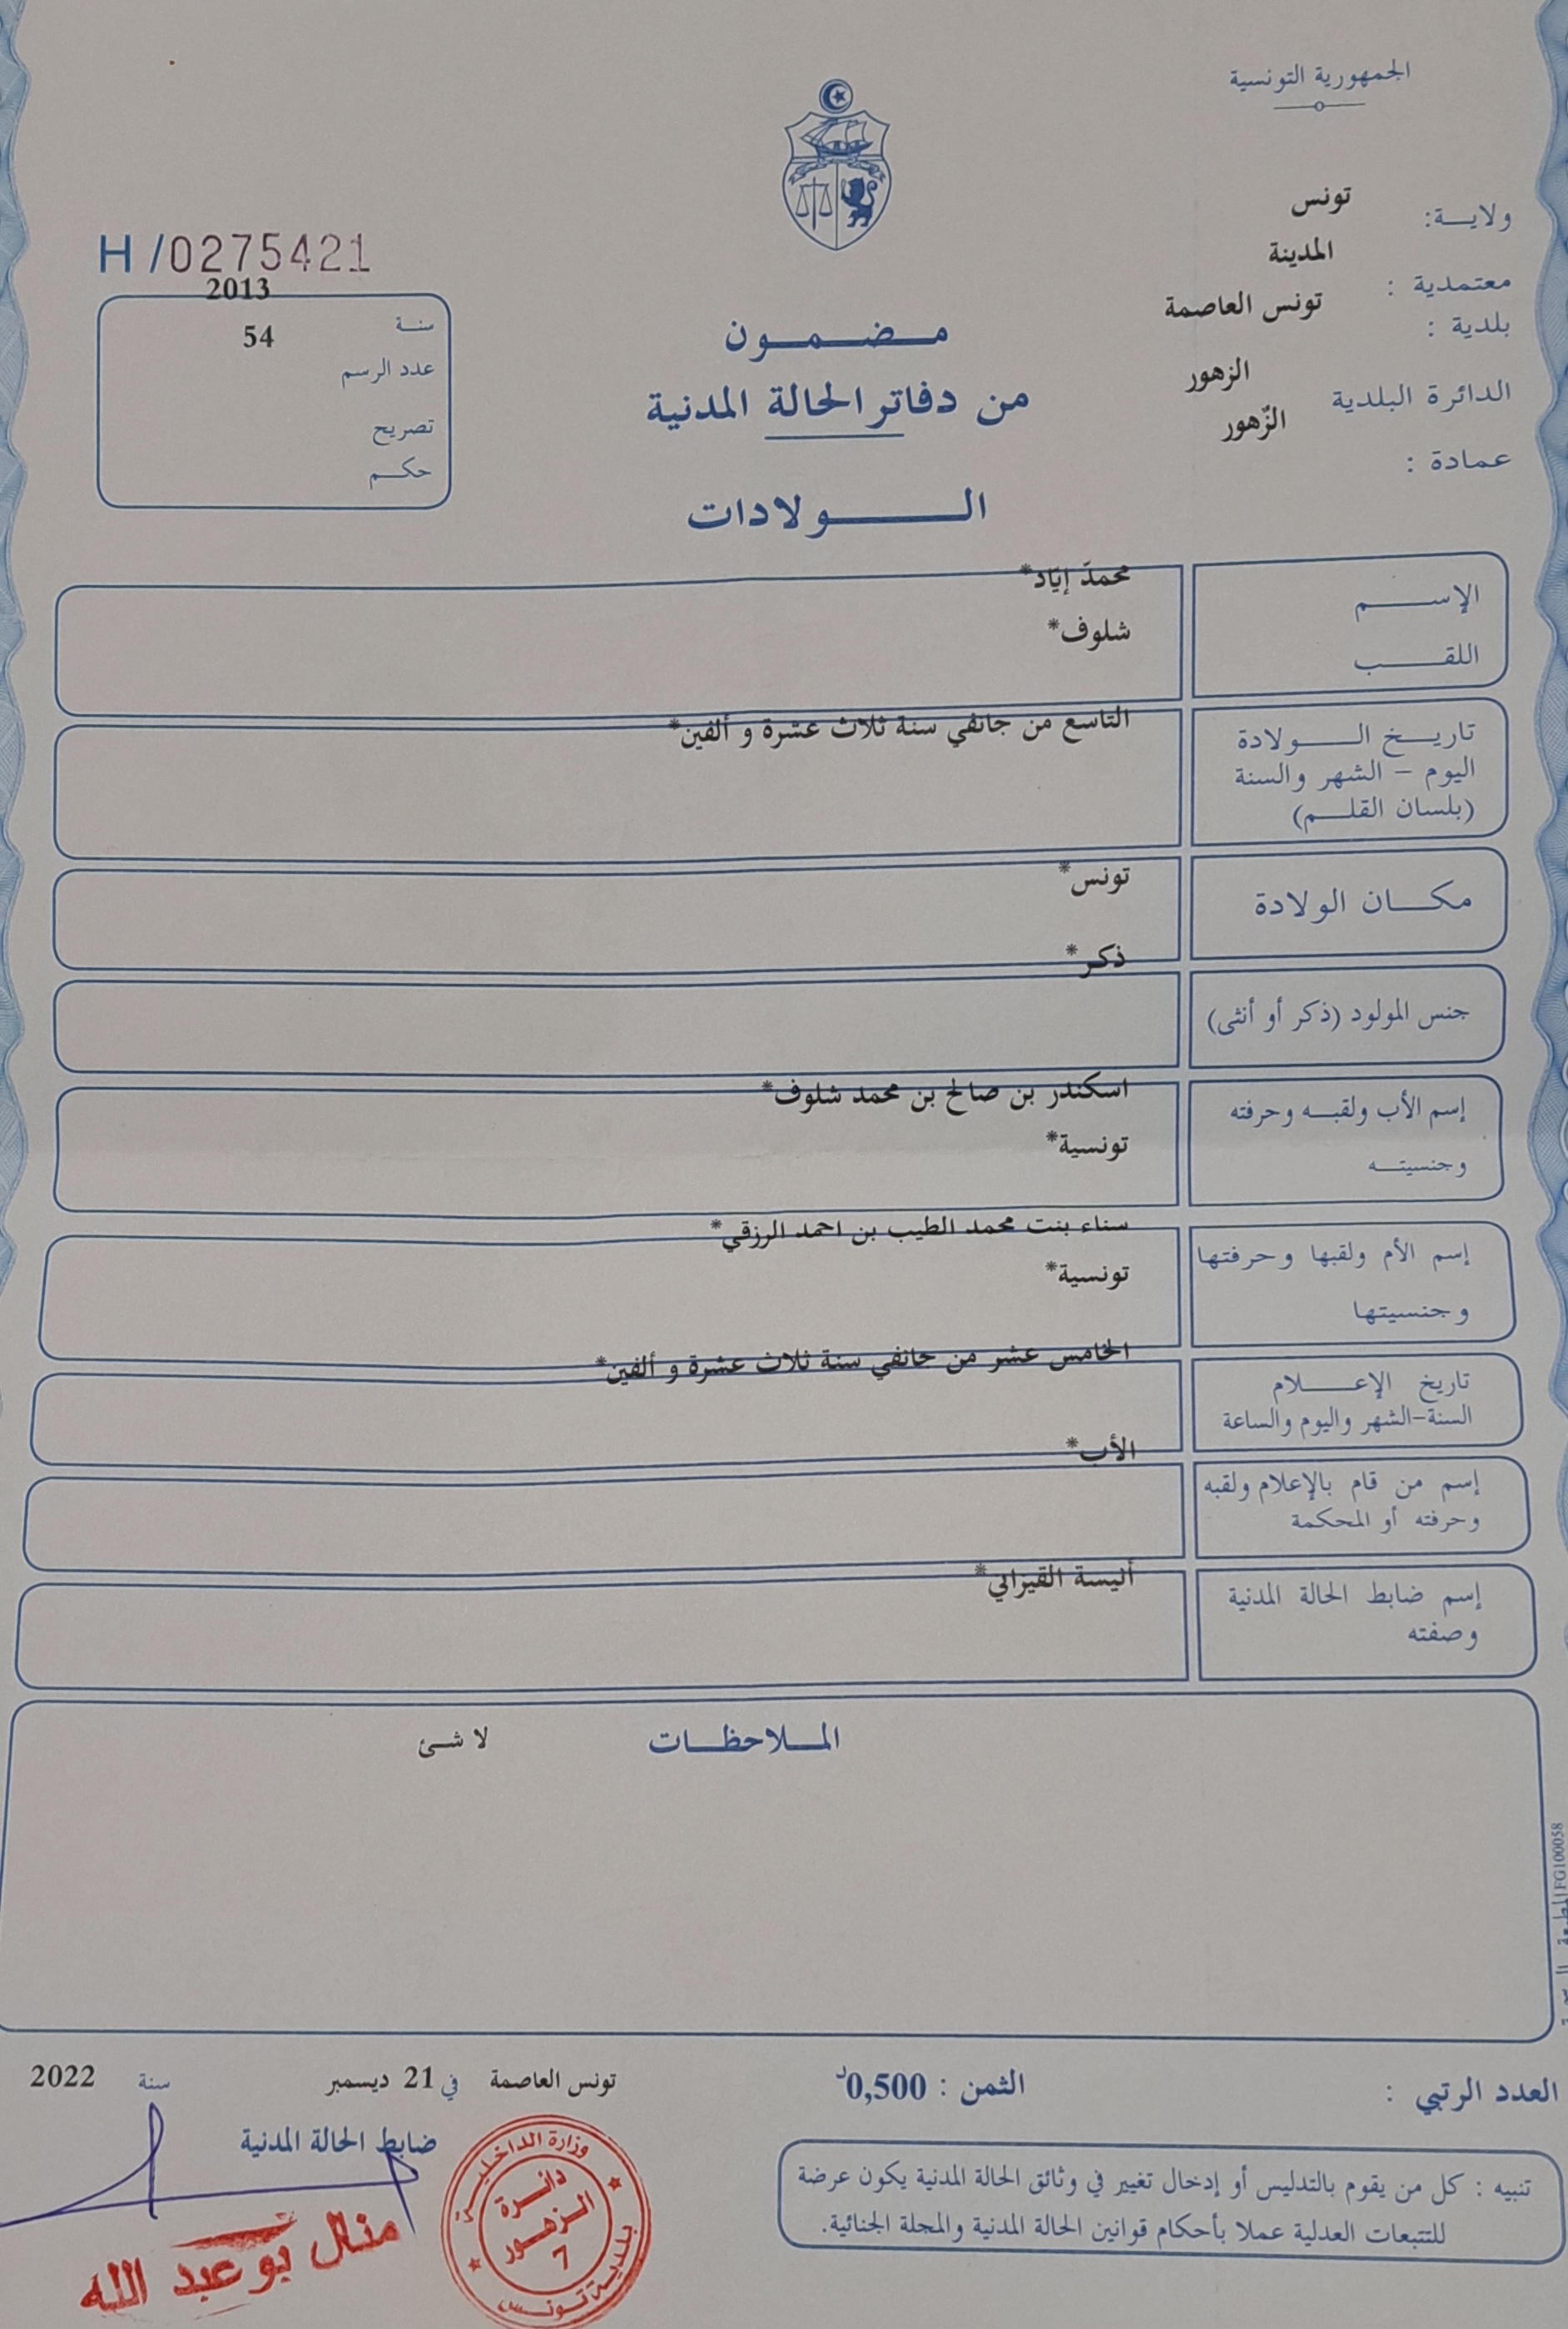 الجمهورية التونسية
ولايـــة: تونس
معتمدية : المدينة
بلدية : تونس العاصمة
الدائرة البلدية الزهور
عمادة : الزّهور
H /0275421
سنـة 2013
عدد الرسم 54
تصريح
حكـــم
مــضــمــون
من دفاتر الحالة المدنية
الـــــولادات
الإســـــم محمدّ إيّاد*
اللقــــب شلوف*
تاريــخ الـــــولادة التاسع من جانفي سنة ثلاث عشرة و ألفين*
اليوم – الشهر والسنة
(بلسان القلـــم)
مكـــان الولادة تونس*
جنس المولود (ذكر أو أنثى) ذكر*
إسم الأب ولقبــه وحرفته اسكندر بن صالح بن محمد شلوف*
وجنسيتــه تونسية*
إسم الأم ولقبها وحرفتها سناء بنت محمد الطيب بن احمد الرزقي*
وجنسيتها تونسية*
تاريخ الإعــــلام الخامس عشر من جانفي سنة ثلاث عشرة و ألفين*
السنة-الشهر واليوم والساعة
إسم من قام بالإعلام ولقبه الأب*
وحرفته أو المحكمة
إسم ضابط الحالة المدنية أنيسة القيزاني*
وصفته
المــلاحظــات لا شئ
FG100058
العدد الرتبي :
الثمن : 0,500د
تونس العاصمة في 21 ديسمبر سنة 2022
ضابط الحالة المدنية
منال بو عبد الله
وزارة الداخلية
دائرة
الزهور
7
بلدية تونس
تنبيه : كل من يقوم بالتدليس أو إدخال تغيير في وثائق الحالة المدنية يكون عرضة
للتتبعات العدلية عملا بأحكام قوانين الحالة المدنية والمجلة الجنائية.